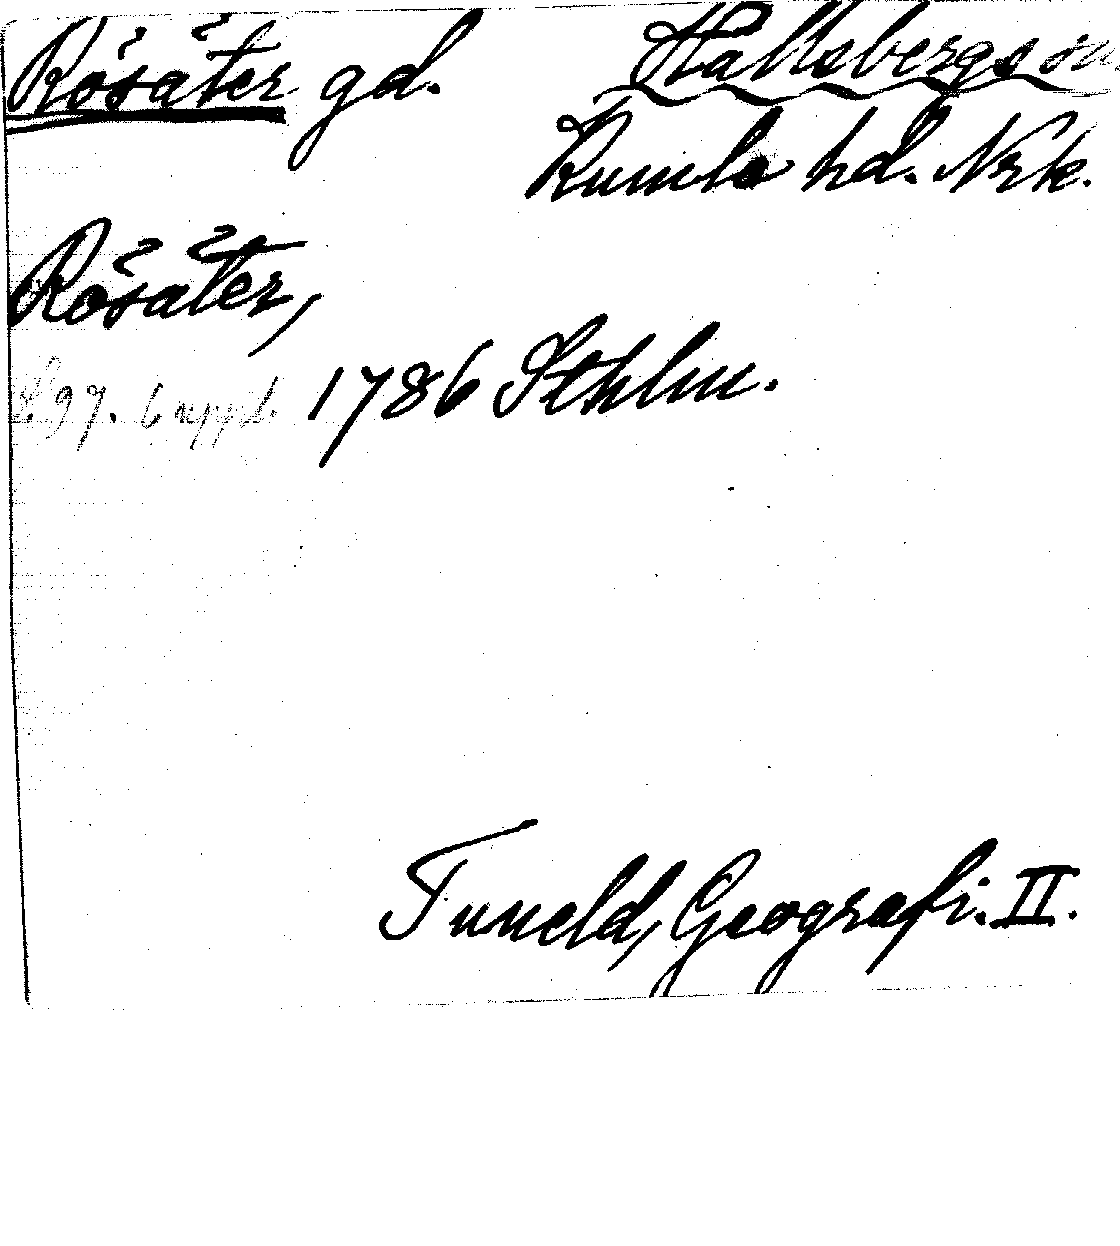 Rösåter gd. Hallsbergs sn
Kumla hd. Nrk.
Rösåter,
s. 97. 6 uppl. 1786 Sthlm.
Tuneld, Geografi. II.